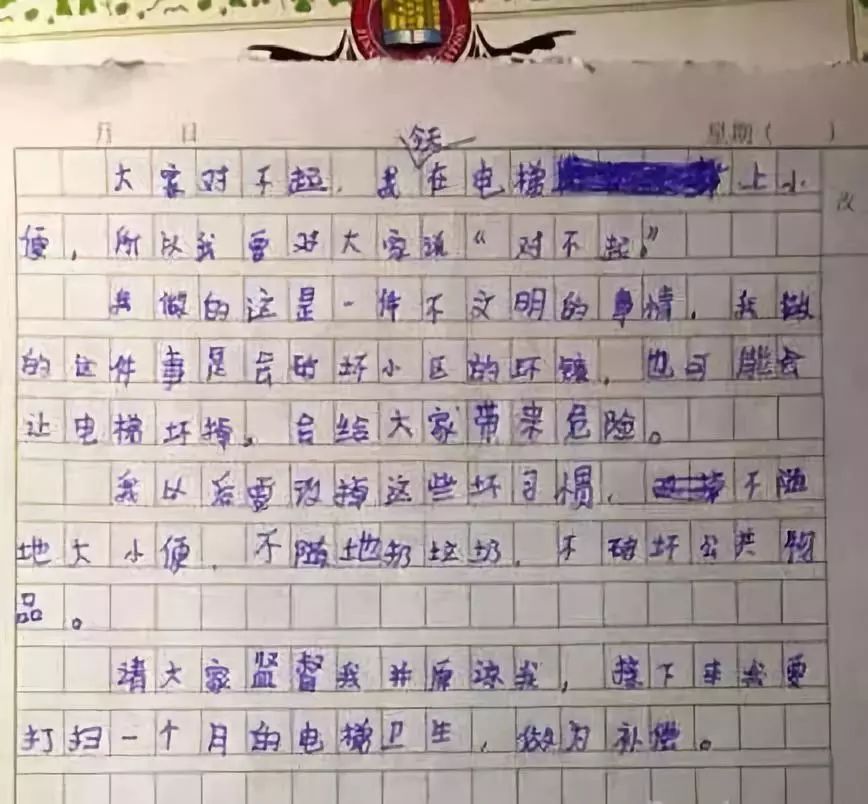 月 日 星期( )
今天
大家对不起，我在电梯上小
便，所以我要对大家说“对不起”
我做的这是一件不文明的事情，我做
的这件事是会破坏小区的环镜，也可能会
让电梯坏掉，会给大家带来危险。
我以后要改掉这些坏习惯，不随
地大小便，不随地扔垃圾，不破坏公共物
品。
请大家监督我并原谅我，接下来我要
打扫一个月的电梯卫生，做为补偿。